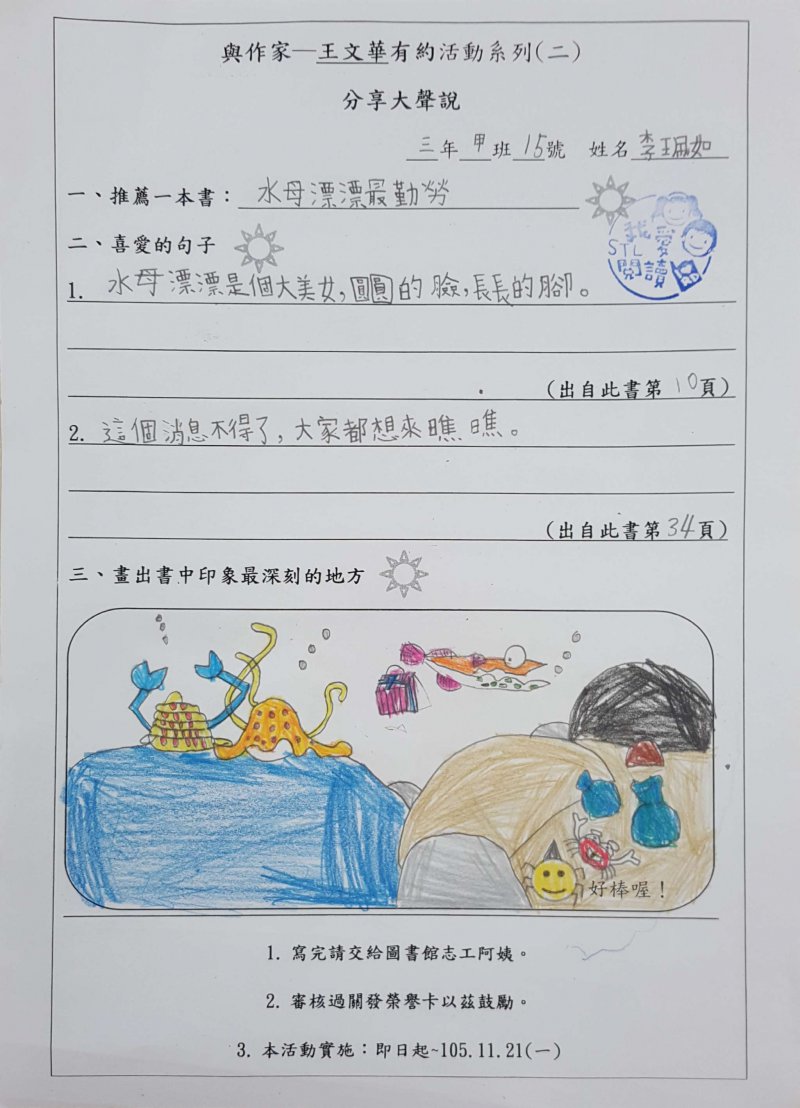 與作家—王文華有約活動系列(二)
分享大聲說
三年甲班15號 姓名李珮如
一、推薦一本書：水母漂漂最勤勞
我愛
STL
閱讀
二、喜愛的句子
1. 水母漂漂是個大美女，圓圓的臉，長長的腳。
(出自此書第10頁)
2. 這個消息不得了，大家都想來瞧瞧。
(出自此書第34頁)
三、畫出書中印象最深刻的地方
好棒喔！
1. 寫完請交給圖書館志工阿姨。
2. 審核過關發榮譽卡以茲鼓勵。
3. 本活動實施：即日起~105.11.21(一)